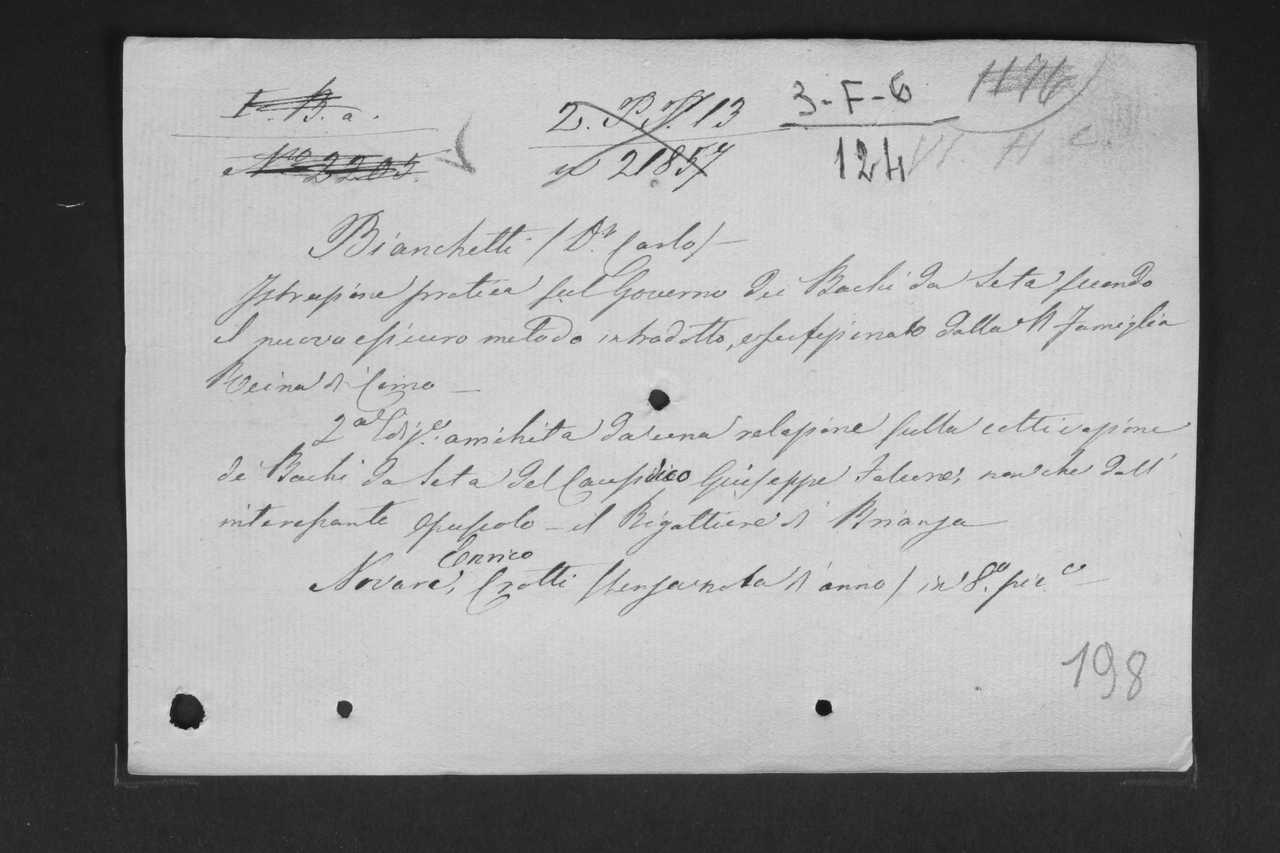 1. B. a.
2. P. N. 13
3-F-6
1176
Nro 2205.
21857
124
VI H c
Bianchetti (Dr. Carlo) —
Istruzione pratica sul Governo dei Bachi da Seta secondo
il nuovo e sicuro metodo introdotto, e perfezionato dalla N. Famiglia
Reina di Como —
2a Ediz.e arrichita da una relazione sulla coltivazione
de Bachi da Seta del Causidico Giuseppe nonche dall'
interessante opuscolo — il Rigattiere di Brianza
Enrico
Novara, Crotti (senza nota d'anno) in 8.o pic.o —
198